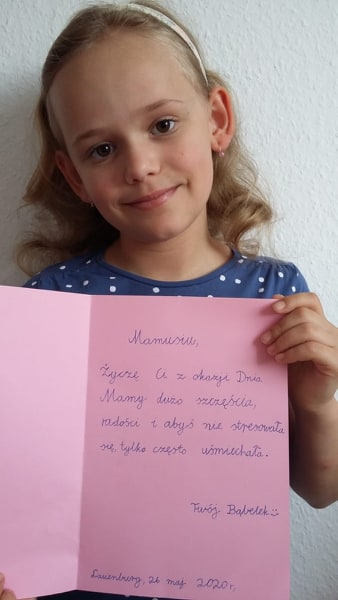 Mamusiu,
Życzę Ci z okazji Dnia
Mamy dużo szczęścia,
radości i abyś nie stresowała
się, tylko często uśmiechała.
Twój Bąbelek
Lauenburg, 26 maj 2020 r,